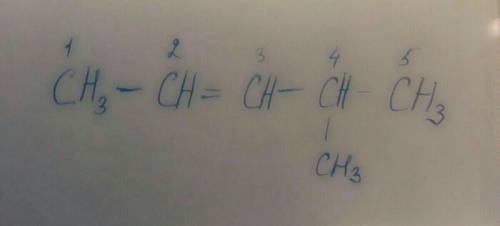 1 2 3 4 5
CH₃ — CH = CH — CH — CH₃
|
CH₃